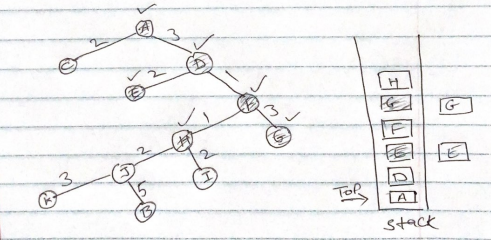 A
2
3
C
D
2
1
E
F
1
3
H
G
2
2
J
I
3
5
K
B
H
G
G
F
E
E
D
TOP
A
Stack